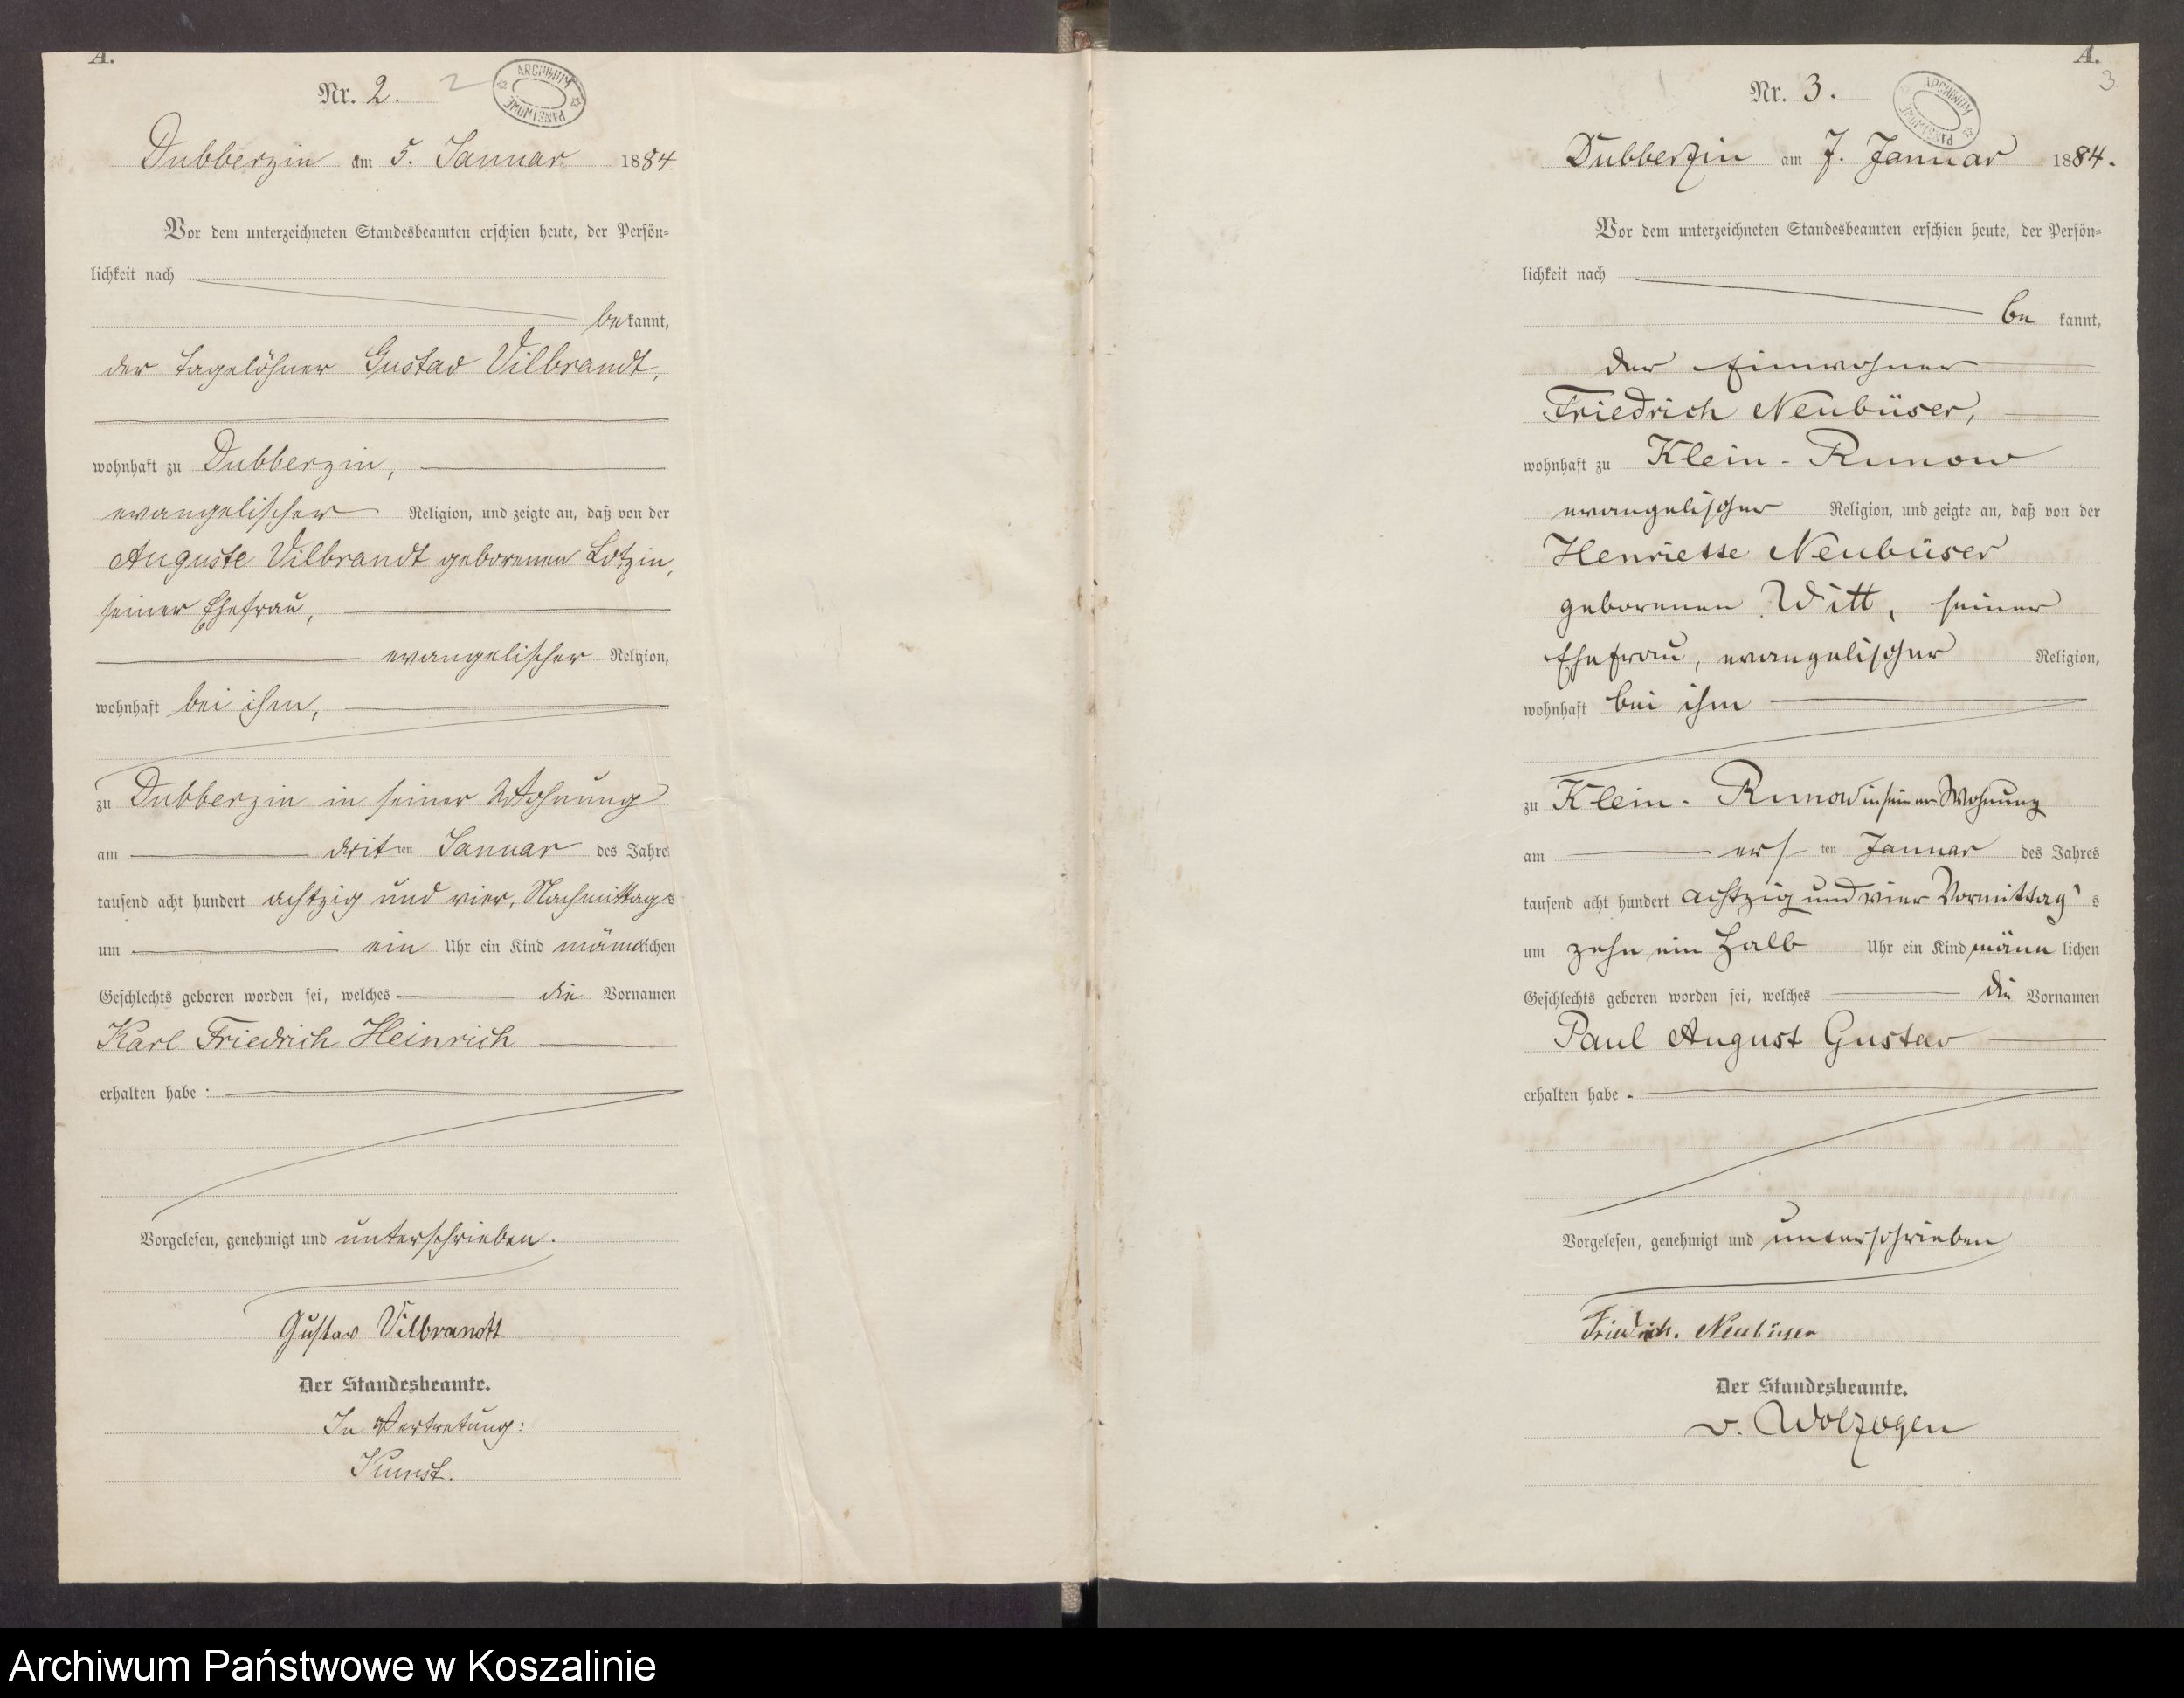 A.
Nr. 2. 2
ARCHIWUM PAŃSTWOWE
Dubberzin am 5. Januar 1884.
Vor dem unterzeichneten Standesbeamten erschien heute, der Persön-
lichkeit nach
bekannt,
der Tagelöhner Gustav Vilbrandt,
wohnhaft zu Dubberzin,
evangelischer Religion, und zeigte an, daß von der
Auguste Vilbrandt geborenen Lotzin,
seiner Ehefrau,
evangelischer Religion,
wohnhaft bei ihm,
zu Dubberzin in seiner Wohnung
am dritten Januar des Jahres
tausend acht hundert achtzig und vier, Nachmittags
um ein Uhr ein Kind männlichen
Geschlechts geboren worden sei, welches die Vornamen
Karl Friedrich Heinrich
erhalten habe.
Vorgelesen, genehmigt und unterschrieben.
Gustav Vilbrandt
Der Standesbeamte.
In Vertretung:
Kunst.
A.
3
Nr. 3.
ARCHIWUM PAŃSTWOWE
Dubberzin am 7. Januar 1884.
Vor dem unterzeichneten Standesbeamten erschien heute, der Persön-
lichkeit nach
be kannt,
der Einwohner
Friedrich Neubüser,
wohnhaft zu Klein-Runow
evangelischer Religion, und zeigte an, daß von der
Henriette Neubüser
geborenen Witt, seiner
Ehefrau, evangelischer Religion,
wohnhaft bei ihm
zu Klein-Runow in seiner Wohnung
am ersten Januar des Jahres
tausend acht hundert achtzig und vier Vormittags
um zehn ein halb Uhr ein Kind männlichen
Geschlechts geboren worden sei, welches die Vornamen
Paul August Gustav
erhalten habe.
Vorgelesen, genehmigt und unterschrieben
Friedrich. Neubüser
Der Standesbeamte.
v. Wolzogen
Archiwum Państwowe w Koszalinie